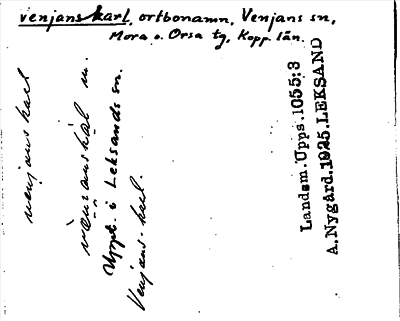 venjanskarl, ortbonamn, Venjans sn,
Mora o. Orsa tg, Kopp. län.
venjanskarl
vènjanskàl m.
Uppt. i Leksands sn.
Venjans-karl.
Landsm.Upps.1055:3
A.Nygård.1925.LEKSAND